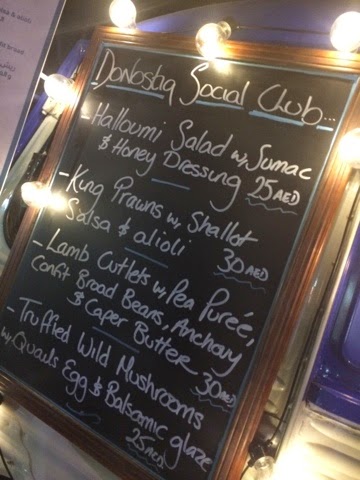 Donostia Social Club...
- Halloumi Salad w, Sumac
& Honey Dressing 25 AED
- King Prawns w, Shallot
Salsa & alioli 30 AED
- Lamb Cutlets w, Pea Purée,
Confit Broad Beans, Anchovy
& Caper Butter 30 AED
- Truffled Wild Mushrooms
w, Quails Egg & Balsamic glaze
25 AED